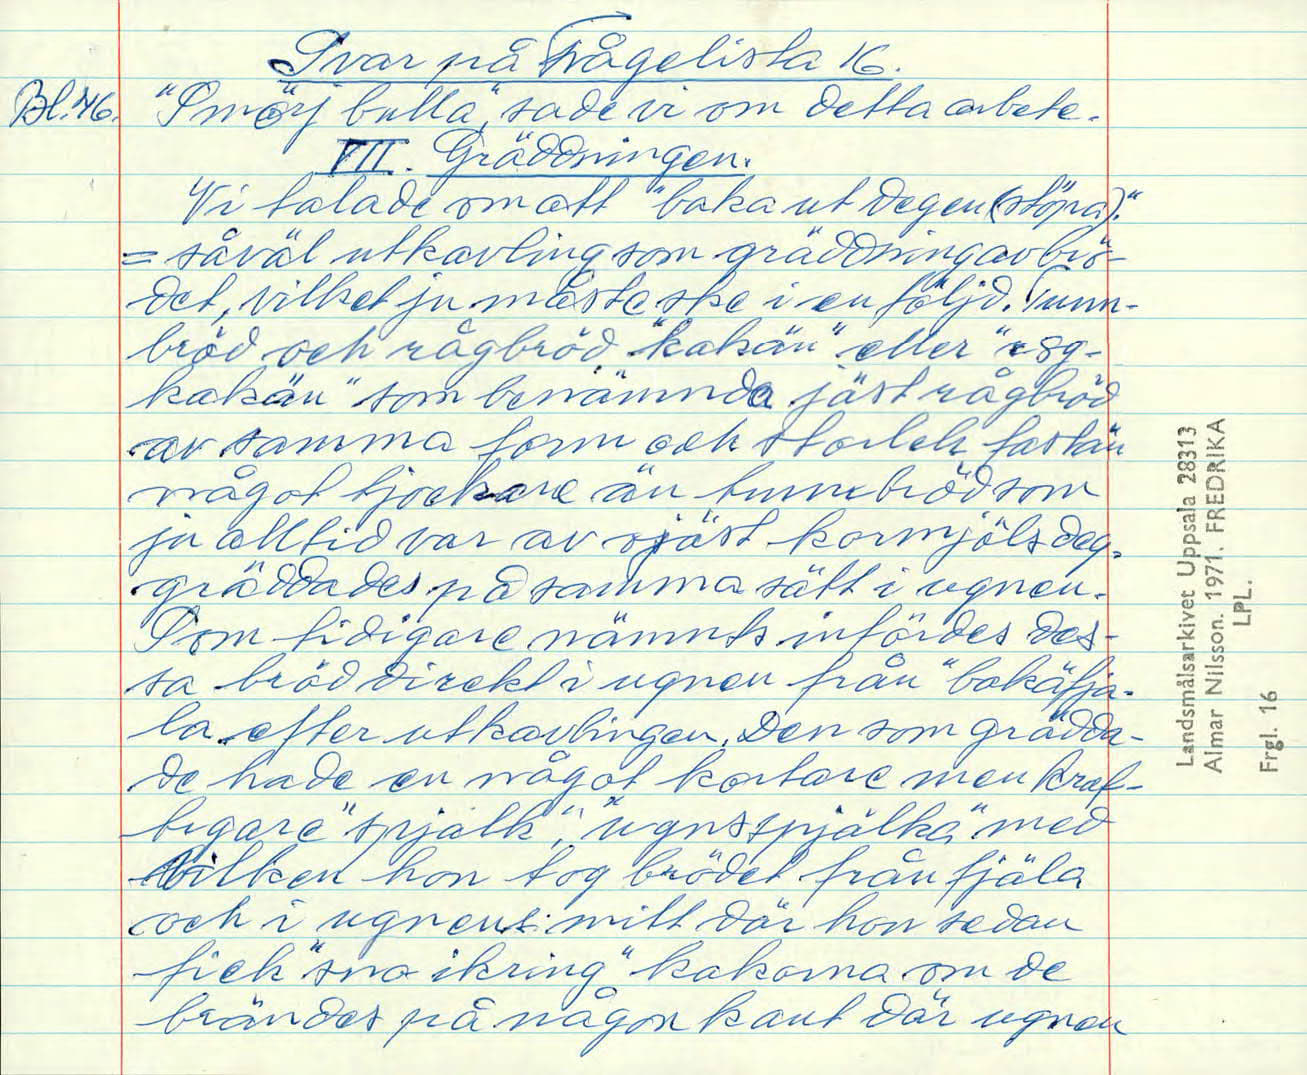 Svar på Frågelista 16.
Bl. 46. "Smörj bulla", sade vi om detta arbete.
VII. Gräddningen.
Vi talade om att "baka ut degen (stöpa)."
= såväl utkavling som gräddning av brö-
det, vilket ju måste ske i en följd. Tunn-
bröd och rågbröd "kakän" eller "rög-
kakän" som benämnda jäst rågbröd
av samma form och storlek fastän
något tjockare än tunnbröd som
ju alltid var av ojäst kornmjölsdeg,
gräddades på samma sätt i ugnen.
Som tidigare nämnts infördes des-
sa bröd direkt i ugnen från "bakäfjä-
la" efter utkavlingen. Den som grädda-
de hade en något kortare men kraf-
tigare "spjälk", "ugnsspjälka" med
vilken hon tog brödet från fjäla
och i ugnens mitt där hon sedan
fick "sno ikring" kakorna om de
brändes på någon kant där ugnen
Landsmålsarkivet Uppsala 28313
Almar Nilsson. 1971. FREDRIKA
LPL.
Frgl. 16